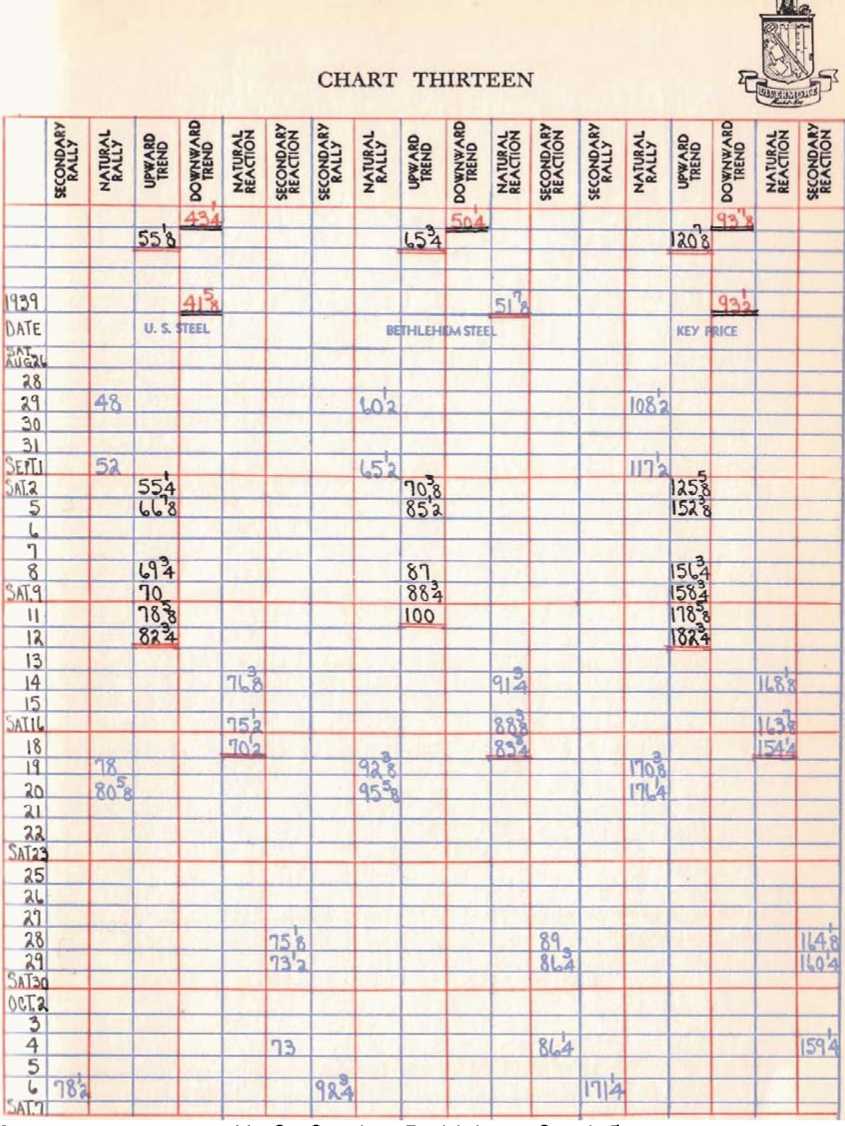 LIVERMORE
CHART THIRTEEN
SECONDARY RALLY NATURAL RALLY UPWARD TREND DOWNWARD TREND NATURAL REACTION SECONDARY REACTION SECONDARY RALLY NATURAL RALLY UPWARD TREND DOWNWARD TREND NATURAL REACTION SECONDARY REACTION SECONDARY RALLY NATURAL RALLY UPWARD TREND DOWNWARD TREND NATURAL REACTION SECONDARY REACTION
43 1/4 50 1/4 93 7/8
55 1/8 65 3/4 120 7/8
1939 41 5/8 51 7/8 93 1/2
DATE U. S. STEEL BETHLEHEM STEEL KEY PRICE
SAT. AUG 26
28
29 48 60 1/2 108 1/2
30
31
SEPT. 1 52 65 1/2 117 1/2
SAT. 2 55 1/4 70 3/8 125 5/8
5 66 7/8 85 1/2 152 3/8
6
7
8 69 3/4 87 156 3/4
SAT. 9 70 88 3/4 158 3/4
11 78 5/8 100 178 5/8
12 82 3/4 182 3/4
13
14 76 3/8 91 3/4 168 1/8
15
SAT 16 75 1/2 88 3/8 163 7/8
18 70 1/2 83 3/4 154 1/4
19 78 92 3/8 170 3/8
20 80 5/8 95 5/8 176 1/4
21
22
SAT 23
25
26
27
28 75 1/8 89 164 1/8
29 73 1/2 86 3/4 160 1/4
SAT 30
OCT. 2
3
4 73 86 1/4 159 1/4
5
6 78 1/2 92 3/4 171 1/4
SAT. 7